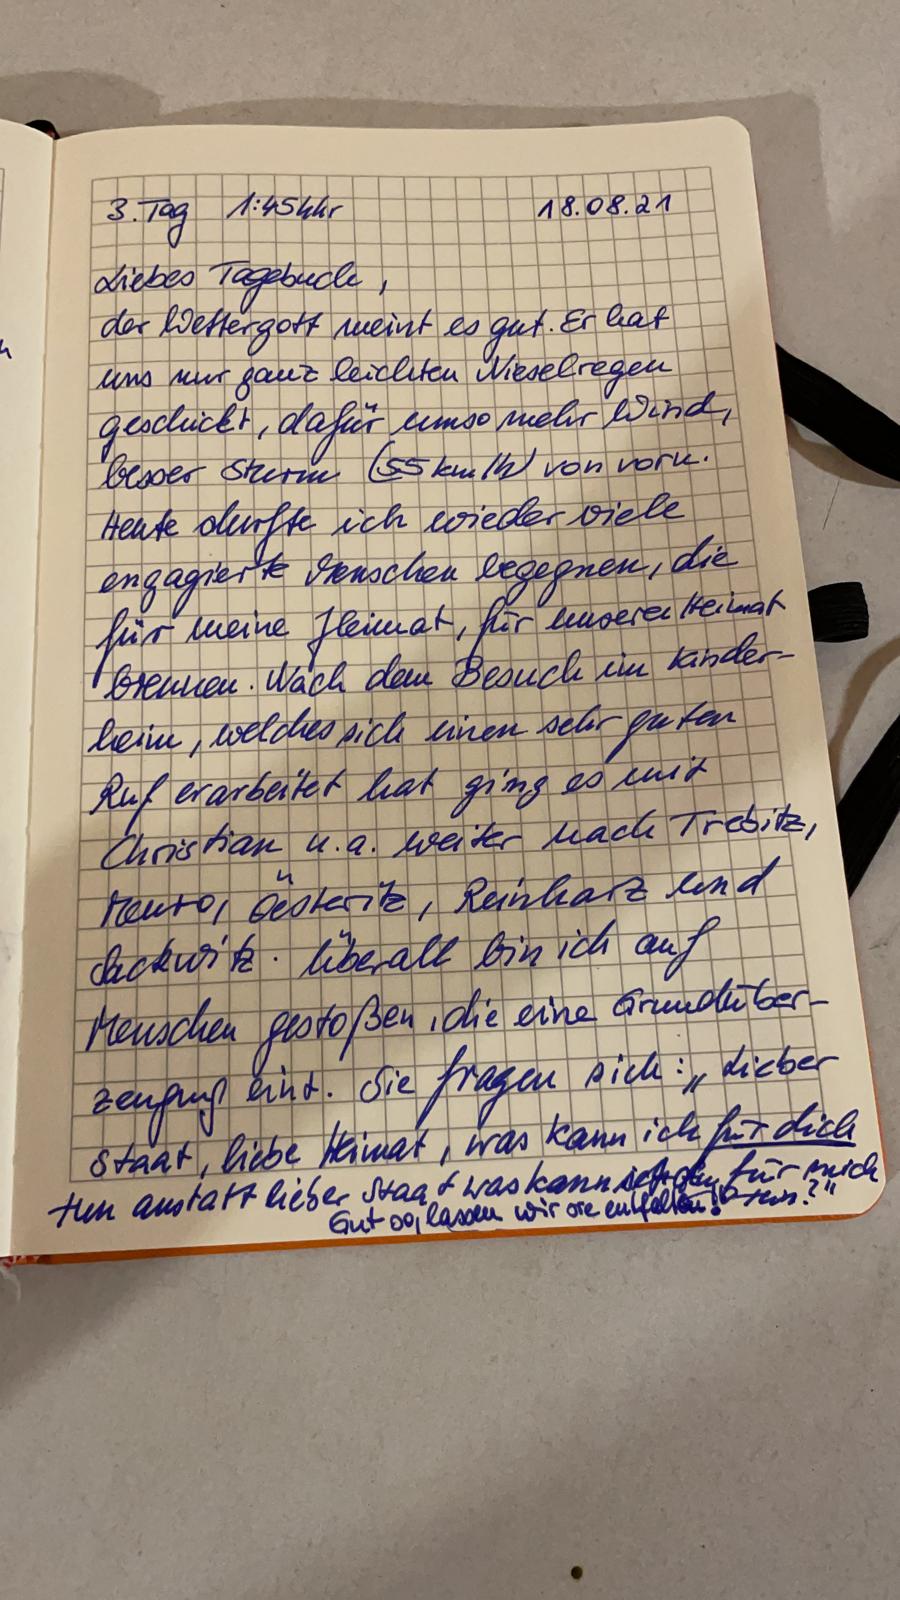 3. Tag 1:45 Uhr 18.08.21
Liebes Tagebuch,
der Wettergott meint es gut. Er hat
uns nur ganz leichten Nieselregen
geschickt, dafür umso mehr Wind,
besser Sturm (55 km/h) von vorn.
Heute durfte ich wieder viele
engagierte Menschen begegnen, die
für meine Heimat, für unsere Heimat
brennen. Nach dem Besuch im Kinder-
heim, welches sich einen sehr guten
Ruf erarbeitet hat ging es mit
Christian u.a. weiter nach Trebitz,
Meuro, Österitz, Reinharz und
Sackwitz. Überall bin ich auf
Menschen gestoßen, die eine Grundüber-
zeugung eint. Sie fragen sich: „Lieber
Staat, liebe Heimat, was kann ich für dich
tun anstatt lieber Staat was kannst du für mich
tun?"
Gut so, lassen wir sie entfalten!